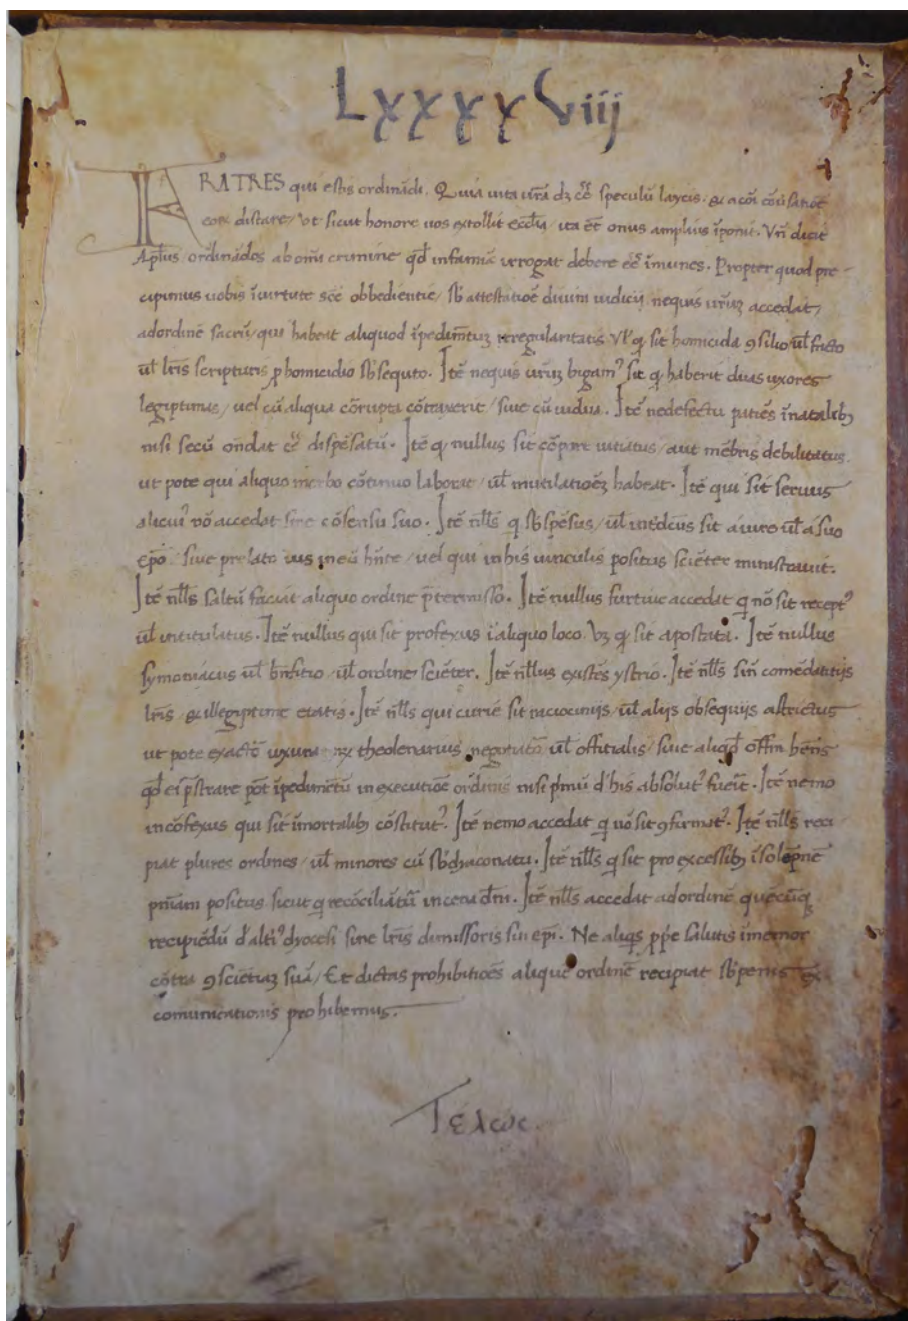 LxxxxViij
FRATRES qui estis ordinādi. Quia uita ur̄a dȝ eē speculū laycis. & a cōi cōuersatiōe
eorum distare, Vt sicut honore uos extollit eccl̄ia, ita et̄ onus amplius īponit. Vn̄ dicit
Ap̄lus, ordinādos ab omī crimine qd̄ infamiā irrogat debere eē īmunes. Propter quod pre-
cipimus uobis īuirtute scē obbedientie, sb̄ attestatiōe diuini iudicij, nequis ur̄uȝ accedat,
ad ordinē sacrū, qui habeat aliquod īpedimētuȝ irregularitatis. Vl̄ ꝙ sit homicida ꝯsilio, ul̄ facto
ul̄ lr̄is scripturis ꝓ homicidio sb̄sequto. Itē nequis ur̄uȝ bigamꝰ sit ꝙ habuerit duas uxores
legiptimas, uel cū aliqua cōrupta cōtraxerit, siue cū uidua. Itē ne defectū patiēs ī natalibꝫ
nisi secū ondat eē dispēsatū. Itē ꝙ nullus sit cōrpore uitiatus, aut mēbris debilitatus.
ut pote qui aliquo morbo cōtinuo laborat, ul̄ mutilatiōeȝ habeat. Itē qui sit seruus
alicuiꝰ nō accedat sine cōsensu suo. Itē nll̄s ꝙ sb̄spēsus, ul̄ intdc̄us sit a iure ul̄ a suo
ep̄o, siue prelato ius ineū hn̄te, uel qui in his uinculis positus sciēter ministrauit.
Itē nll̄s saltū faciat aliquo ordine p̄termisso. Itē nullus furtiue accedat ꝙ nō sit receptꝰ
ul̄ intitulatus. Itē nullus qui sit profexus ī aliquo loco. Vȝ ꝙ sit apostata. Itē nullus
symoniacus ul̄ bn̄fitio, ul̄ ordine sciēter. Itē nll̄us existēs ystrio. Itē nll̄s sin̄ comēdatitijs
lr̄is, & illegiptime etatis. Itē nll̄s qui curie sit raciocinijs, ul̄ alijs obsequijs astrictus
ut pote exactō uxura theolenarius negotiatō ul̄ offitialis, siue aliqd̄ offm̄ hēns
qd̄ ei p̄strare pōt īpedimētū in executiōe ordinis nisi pͥmū d' his absolutꝰ fuerit. Itē nemo
incōfexus qui sit ī mortalibꝫ cōstitutꝰ. Itē nemo accedat ꝙ nō sit ꝯfirmatꝰ. Itē nll̄s reci-
piat plures ordines, ul̄ minores cū sb̄diaconatu. Itē nll̄s ꝙ sit pro excessibꝫ ī solēpnē
pn̄iam positus sicut ꝙ recōciliātū in cena dn̄i. Itē nll̄s accedat ad ordinē quēcūqꝫ
recipiēdū d' altiꝰ dyocesi sine lr̄is dimissoris sui epī. Ne aliqͥs ꝓpe salutis īmemor
cōtra ꝯsciētiaȝ suā, Et dictas prohibitiōes aliquē ordinē recipiat sb̄ penis ex
comunicationis prohibemus.
Τέλως.